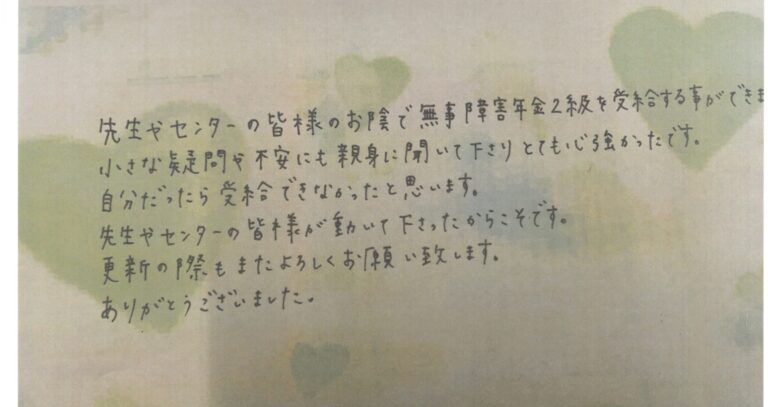 先生やセンターの皆様のお陰で無事障害年金2級を受給する事ができま
小さな疑問や不安にも親身に聞いて下さりとても心強かったです。
自分だったら受給できなかったと思います。
先生やセンターの皆様が動いて下さったからこそです。
更新の際もまたよろしくお願い致します。
ありがとうございました。